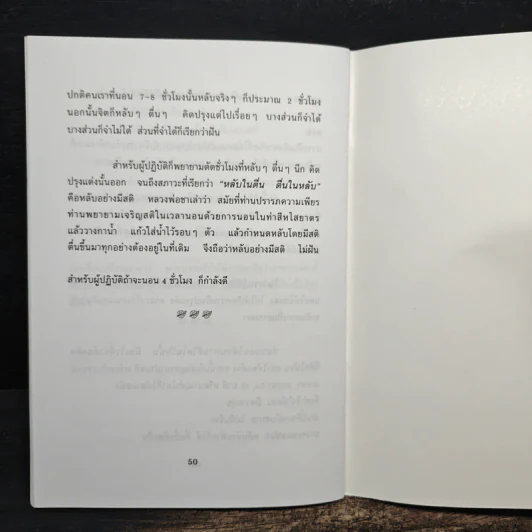 ปกติคนเราที่นอน 7-8 ชั่วโมงนั้นหลับจริงๆ ก็ประมาณ 2 ชั่วโมง
นอกนั้นจิตก็หลับๆ ตื่นๆ คิดปรุงแต่งไปเรื่อยๆ บางส่วนก็จำได้
บางส่วนก็จำไม่ได้ ส่วนที่จำได้ก็เรียกว่าฝัน
สำหรับผู้ปฏิบัติก็พยายามตัดชั่วโมงที่หลับๆ ตื่นๆ นึก คิด
ปรุงแต่งนั้นออก จนถึงสภาวะที่เรียกว่า "หลับในตื่น ตื่นในหลับ"
คือหลับอย่างมีสติ หลวงพ่อชาเล่าว่า สมัยที่ท่านปรารภความเพียร
ท่านพยายามเจริญสติในเวลานอนด้วยการนอนในท่าสีหไสยาตร
แล้ววางกาน้ำ แก้วใส่น้ำไว้รอบๆ ตัว แล้วกำหนดหลับโดยมีสติ
ตื่นขึ้นมาทุกอย่างต้องอยู่ในที่เดิม จึงถือว่าหลับอย่างมีสติ ไม่ฝัน
สำหรับผู้ปฏิบัติถ้าจะนอน 4 ชั่วโมง ก็กำลังดี
50